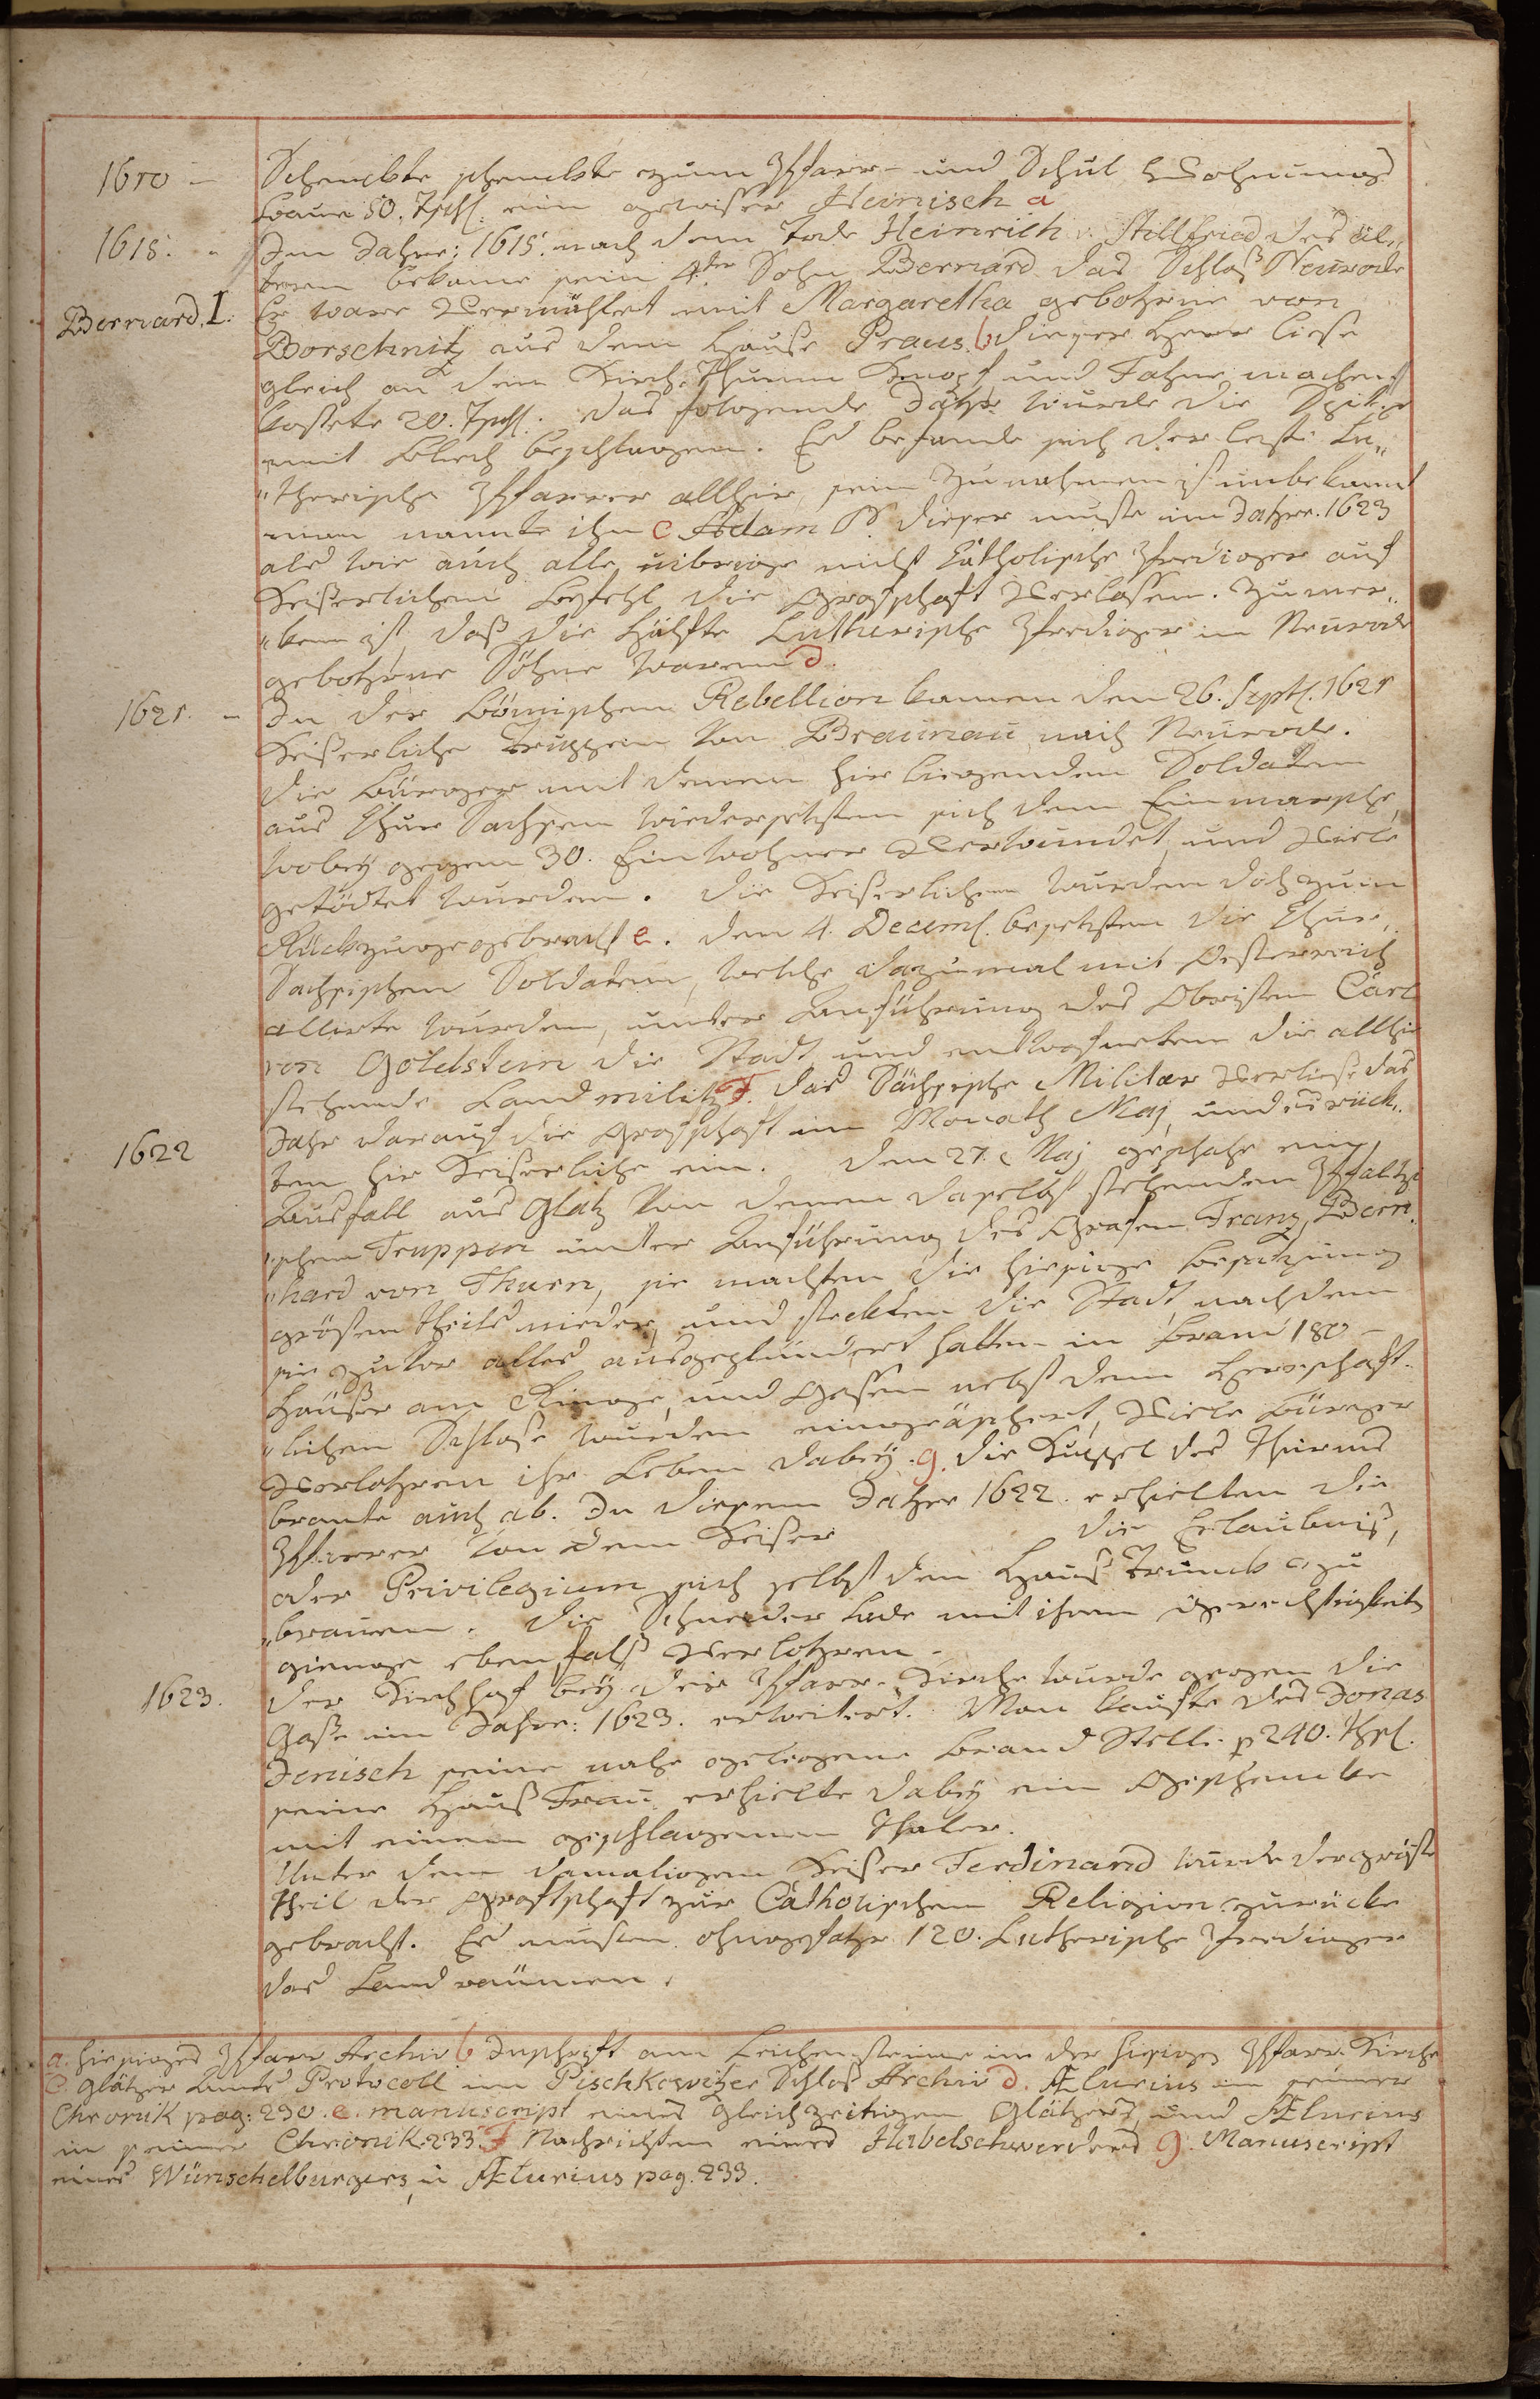 1610 — Schenckte schenckte zum Pfarr- und Schul Wohnungs
baue 80. Thl. ein gewisser Heinisch a
1615. Im Jahre: 1615. nach dem Tode Heinrich v. Stillfried des äl„
tern bekame sein 4ter Sohn Bernard das Schloß Neurode
Bernard. I. Er ware Vermählet mit Margaretha gebohrne von
Borschnitz aus dem Hauße Praus. b dieser Herr liese
gleich an dem Kirch Thurm Knopf und Fahne machen
kostete 20. Thl. das folgende Jahr wurde die Spitze
mit Blech beschlagen. Es befande sich der leste Lu„
„therische Pfarrer allhier, sein Zunahmen ist unbekannt
man nannte ihn c Adam P. dieser muste im Jahre. 1623
als wie auch alle uibrige nicht Catholische Prediger auf
Keiserlichen Befehl die Grafschaft Verlassen. Zu mer„
„ken ist, daß die Hälfte Lutherische Prediger in Neurode
gebohrne Söhne waren d.
1621. — In der Bömischen Rebellion kamen den 26. Septb. 1621
Keiserliche Truppen von Braunau nach Neurode.
die Bürger mit denen hir liegenden Soldaten
aus Chur Sachsen wiedersetzten sich dem Einmarsche,
wobey gegen 30. Einwohner Verwundet und Viele
getödtet wurden. die Keiserlichen wurden doch zum
Rückzuge gebracht e. den 4. Decemb. besetzten die Chur„
Sachsischen Soldaten, welche dazumal mit Oesterreich
allirte wurden, unter Anführung des Obristen Carl
von Goldstein die Stadt und entwafneten die allhir
stehende Landmilitz f. das Sächsische Militar Verliese das
1622 Jahr darauf die Grafschaft im Monath Maj, und rück„
ten hir Keiserliche ein. den 27. Maj geschahe ein
Ausfall aus Glatz Von denen daselbst stehenden Pfaltzi
„schen Truppen unter Anführung des Grafen Franz, Bern„
„hard von Thurn, sie machten die hiesige Besatzung
grösten theils nieder, und steckten die Stadt nachdem
sie zuvor alles ausgeplündert hatten in Brand 180 —
Häußer am Ringe, und Gassen nebst dem Herrschaft„
„lichen Schlose wurden eingeäschert, Viele Bürger
Verlohren ihr Leben dabey. g. die Kuppel des Thurms
brante auch ab. In diesem Jahre 1622. erhielten die
Pfarrer Von dem Keiser die Erlaubniß,
oder Privilegium sich selbst den Hauß Trunck zu
„brauen. die Schneider Lade mit ihren Gerechtigkeiten
gienge eben fals Verlohren.
1623. der Kirchhof bey der Pfarr-Kirche wurde gegen die
Gaße im Jahre: 1623. erweitert. Man kaufte des Jonas
Jenisch seine nahe gelegene Brand Stelle p 240. Thl.
seine Hauß Frau erhielte dabey ein Geschencke
mit einem geschlagenen Thaler.
Unter dem damaligen Keiser Ferdinand wurde der gröste
Theil der Graffschaft zur Catholischen Religion zurücke
gebracht. Es musten ohngefahr 120. Lutherische Prediger
das Land räumen.
a. hiesiges Pfarr Archiv b Inschrift am Leichensteine in der hiesigen Pfarr Kirche
c. Glätzer Amts Protocoll im Pischkowitzer Schlos Archiv d. Ælurius in seiner
Chronik pag: 230. e. manuscript eines gleichzeitigen Glätzers, und Ælurius
in seiner Chronik. 233. f Nachrichten eines Habelschwerders g. Manuscript
eines Wünschelburgers, u Ælurius pag. 233.